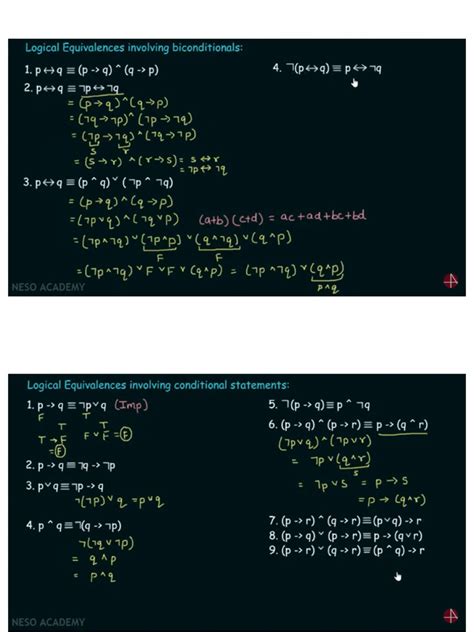 Logical Equivalences involving biconditionals:
1. p↔q ≡ (p -> q) ^ (q -> p)
2. p↔q ≡ ¬p↔¬q
= (p→q)^(q→p)
= (¬q→¬p)^(¬p→¬q)
= (¬p→¬q)^(¬q→¬p)
s r
= (s→r)^(r→s) = s↔r
= ¬p↔¬q
3. p↔q ≡ (p ^ q) ˅ (¬p ^ ¬q)
= (p→q)^(q→p)
= (¬p˅q)^(¬q˅p) (a+b)(c+d) = ac+ad+bc+bd
= (¬p^¬q)˅(¬p^p)˅(q^¬q)˅(q^p)
F F
= (¬p^¬q)˅F˅F˅(q^p) = (¬p^¬q)˅(q^p)
p^q
4. ¬(p↔q) ≡ p↔¬q
NESO ACADEMY
Logical Equivalences involving conditional statements:
1. p -> q ≡ ¬p˅q (Imp)
F T
T
T→F F˅F = F
= F
2. p -> q ≡ ¬q -> ¬p
3. p˅q ≡ ¬p -> q
¬(¬p)˅q = p˅q
4. p ^ q ≡ ¬(q -> ¬p)
¬(¬q˅¬p)
= q^p
= p^q
5. ¬(p -> q) ≡ p ^ ¬q
6. (p -> q) ^ (p -> r) ≡ p -> (q ^ r)
(¬p˅q)^(¬p˅r)
= ¬p˅(q^r)
s
= ¬p˅s = p→s
= p→(q^r)
7. (p -> r) ^ (q -> r) ≡ (p˅q) -> r
8. (p -> q) ˅ (p -> r) ≡ p -> (q˅r)
9. (p -> r) ˅ (q -> r) ≡ (p ^ q) -> r
NESO ACADEMY